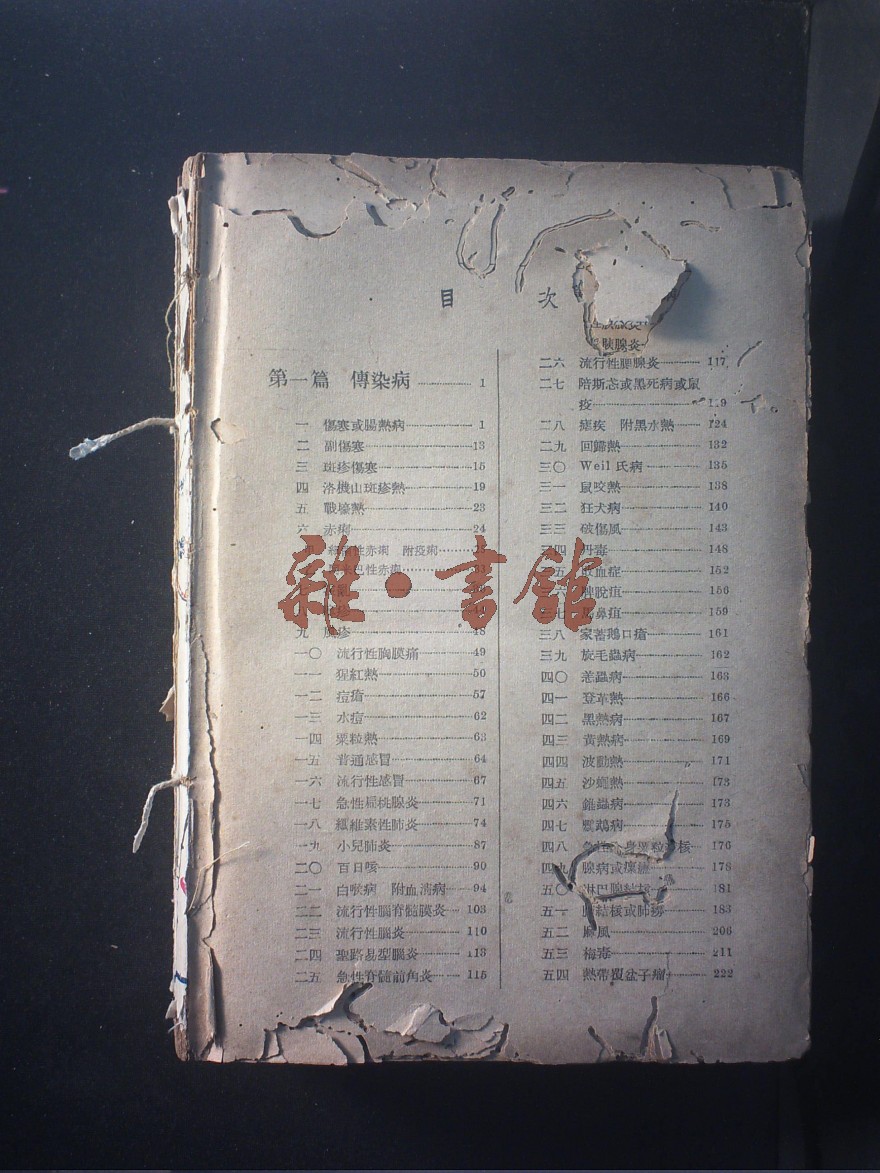 目 次
第一篇 傳染病 1
一 傷寒或腸熱病 1
二 副傷寒 13
三 斑疹傷寒 15
四 洛機山斑疹熱 19
五 戰壕熱 23
六 赤痢 24
性赤痢 附疫痢
巴性赤痢
九 風疹 48
一〇 流行性胸膜痛 49
一一 猩紅熱 50
一二 痘瘡 57
一三 水痘 62
一四 粟粒熱 63
一五 普通感冒 64
一六 流行性感冒 67
一七 急性扁桃腺炎 71
一八 纖維素性肺炎 74
一九 小兒肺炎 87
二〇 百日咳 90
二一 白喉病 附血清病 94
二二 流行性腦脊髓膜炎 103
二三 流行性腦炎 110
二四 聖路易型腦炎 113
二五 急性脊髓前角炎 115
腺炎
二六 流行性腮腺炎 117
二七 陪斯忒或黑死病或鼠
疫 119
二八 瘧疾 附黑水熱 124
二九 回歸熱 132
三〇 Weil 氏病 135
三一 鼠咬熱 138
三二 狂犬病 140
三三 破傷風 143
三四 丹毒 148
五 敗血症 152
脾脫疽 156
七 馬鼻疽 159
三八 家畜鵝口瘡 161
三九 旋毛蟲病 162
四〇 恙蟲病 163
四一 登革熱 166
四二 黑熱病 167
四三 黃熱病 169
四四 波動熱 171
四五 沙蠅熱 173
四六 錐蟲病 173
四七 鸚鵡病 175
四八 急性全身粟粒結核 176
四九 腺病或瘰癧 178
五〇 淋巴腺結核 181
五一 肺結核或肺癆 183
五二 麻風 206
五三 梅毒 211
五四 熱帶覆盆子瘤 222
雜·書館